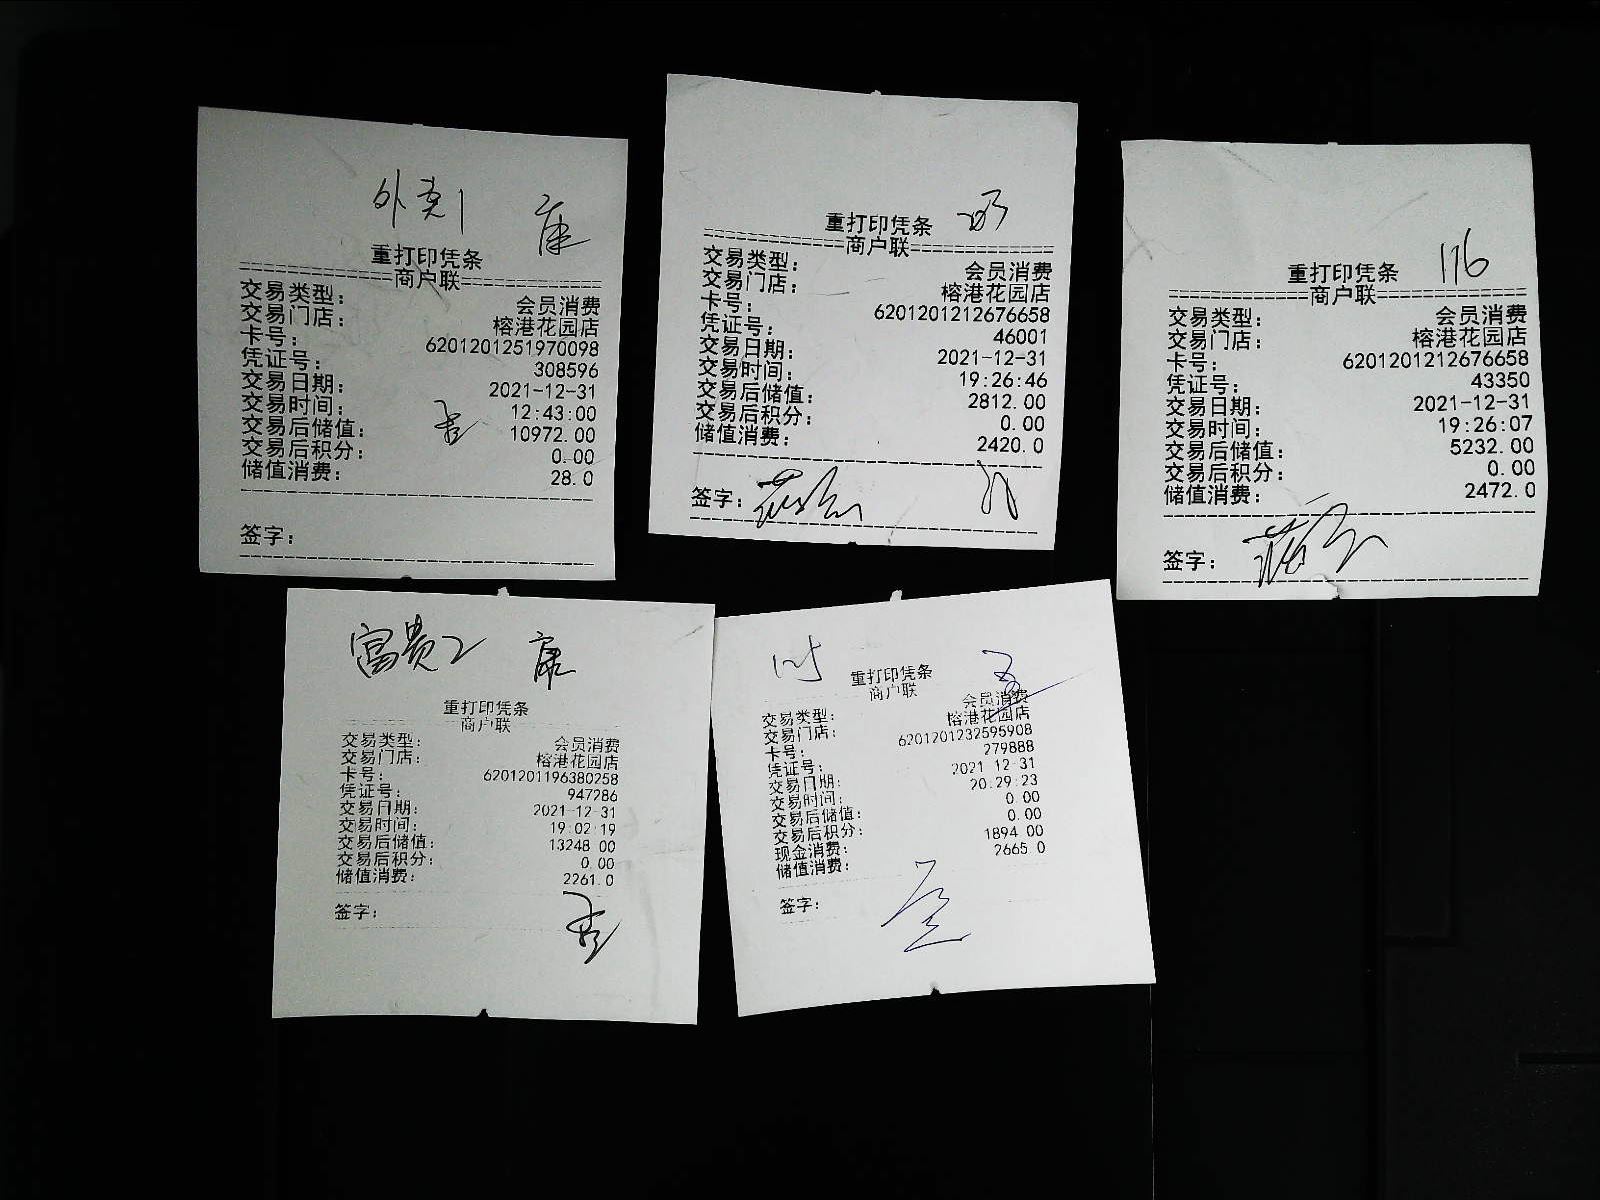 外卖1 康
重打印凭条
商户联
交易类型: 会员消费
交易门店: 榕港花园店
卡号: 6201201251970098
凭证号: 308596
交易日期: 2021-12-31
交易时间: 12:43:00
交易后储值: 10972.00
交易后积分: 0.00
储值消费: 28.0
签字:
重打印凭条
商户联
交易类型: 会员消费
交易门店: 榕港花园店
卡号: 6201201212676658
凭证号: 46001
交易日期: 2021-12-31
交易时间: 19:26:46
交易后储值: 2812.00
交易后积分: 0.00
储值消费: 2420.0
签字:
116
重打印凭条
商户联
交易类型: 会员消费
交易门店: 榕港花园店
卡号: 6201201212676658
凭证号: 43350
交易日期: 2021-12-31
交易时间: 19:26:07
交易后储值: 5232.00
交易后积分: 0.00
储值消费: 2472.0
签字:
富贵2 康
重打印凭条
商户联
交易类型: 会员消费
交易门店: 榕港花园店
卡号: 6201201196380258
凭证号: 947286
交易日期: 2021-12-31
交易时间: 19:02:19
交易后储值: 13248.00
交易后积分: 0.00
储值消费: 2261.0
签字:
重打印凭条
商户联
交易类型: 会员消费
交易门店: 榕港花园店
卡号: 6201201232595908
凭证号: 279888
交易日期: 2021-12-31
交易时间: 20:29:23
交易后储值: 0.00
交易后积分: 0.00
现金消费: 1894.00
储值消费: 2665.0
签字: